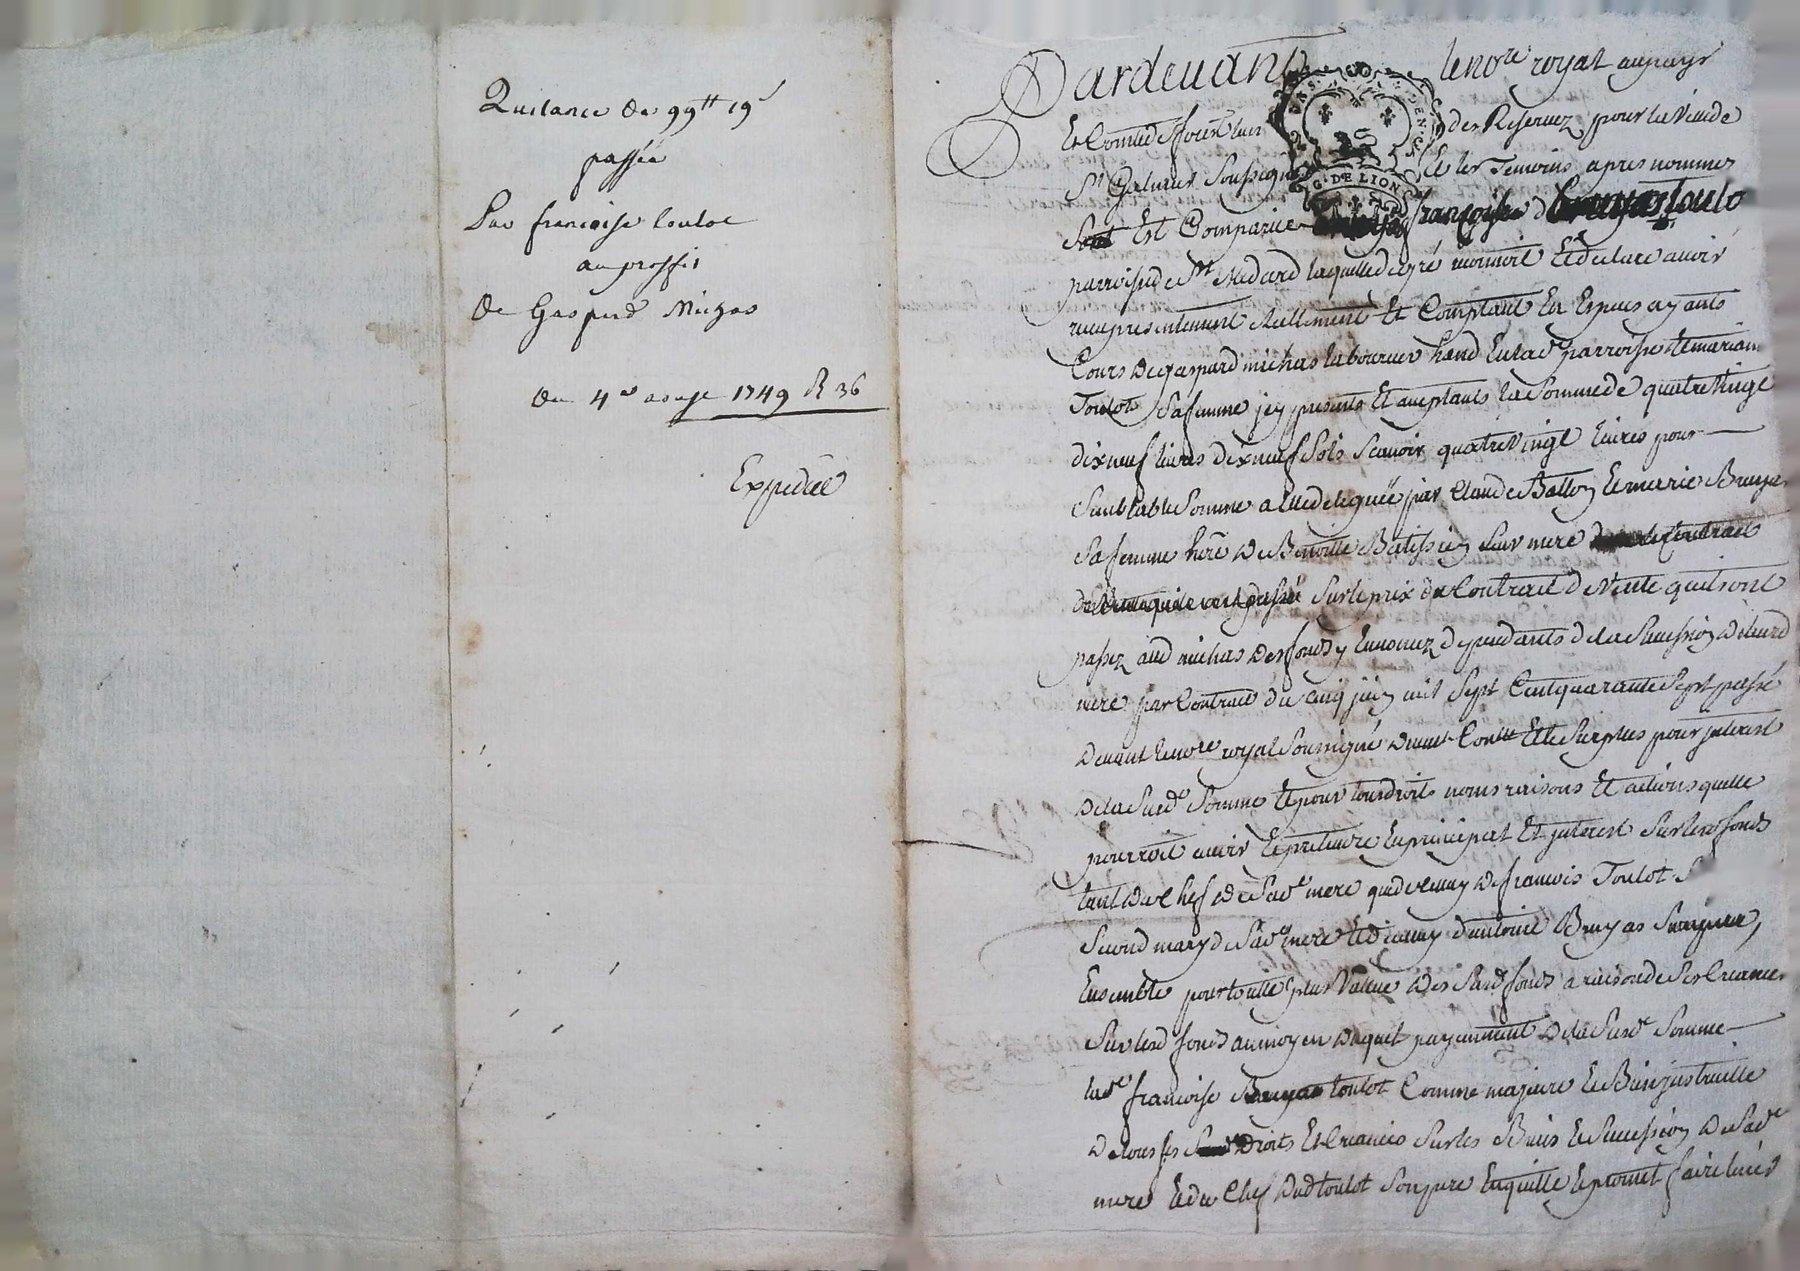 Quitance de 99tt 19s
passée
Par francoise toulot
au proffit
De Gaspard Michas
Du 4e aoust 1749 R 36
Expediée
Pardevant le nore royal au pays
Et Comté de forest des Reservez pour la Ville de
St Galmier Soussigné Et les Temoins apres nommez
Est Comparüe françoise toulot
parroisse de St Medard laquelle de gré reconnoit Et declare avoir
receu presentement Reellement Et Comptant En Especes ayants
Cours de gaspard michas laboureur En lade parroisse Et
Toulot Sa femme jcy presents Et acceptants la Somme de quatre Vingt
dix neuf livres dix neuf Sols Scavoir quatre Vingt livres pour
Semblable Somme a elle deleguée par Claude Et marie Bruyas
Sa femme de Leur mere
Sur le prix du Contract de Vente quils ont
passez aud michas des fonds y Enoncez dependants de la Succession de leurd
mere par Contract du cinq juin mil Sept Cent quarante Sept passé
Devant le nore royal Soussigné Et le Surplus pour jnterest
De la Susde Somme Et pour tous droits noms raisons Et actions quelle
pourroit avoir Et pretendre En principal Et jnterest Sur lesd fonds
tant du Chef De Sade mere que de celuy De francois Toulot
Second mary de Sade mere Et de celuy d'antoine Bruyas
Ensemble pour toutte plus Value des Susd fonds a raison de Ses Creances
Sur lesd fonds au moyen duquel payemment De la Susde Somme
lade francoise toulot Comme majeure Et Bien jnstruitte
De tous ses Droits Et Creances Sur les Biens Et Succession De Sade
mere Et du Chef Dud toulot Son pere Enquitte Et promet faire tenir
G. DE LION